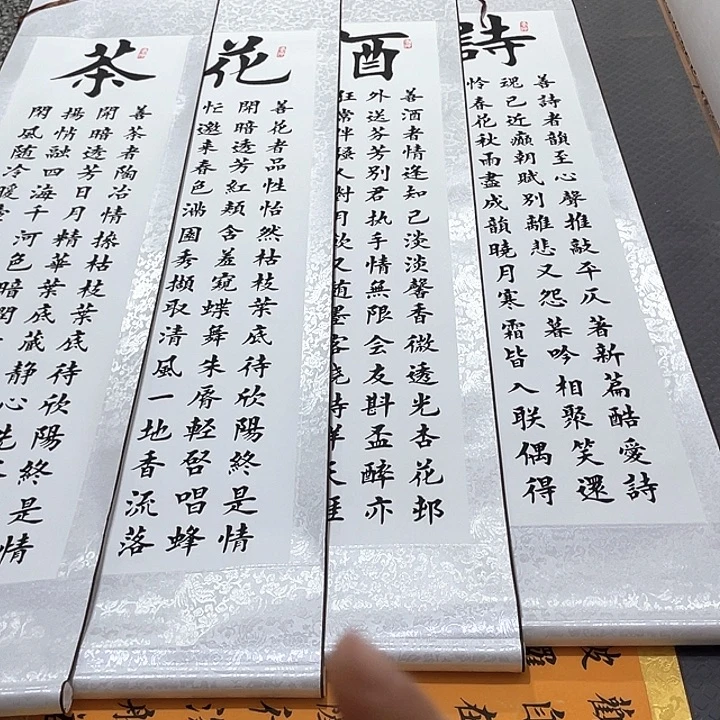 詩
善詩者韻至心聲推敲平仄著新篇酷愛詩
魂已近癲朝賦別離悲又怨暮吟相聚笑還
怜春花秋雨盡成韻曉月寒霜皆入联偶得
酒
善酒者情逢知己淡淡馨香微透光杏花邨
外送芬芳別君执手情無限会友斟盃醉亦
狂常伴騷人對月飲又随墨客
花
善花者品性怡然枯枝葉底待欣陽終是情
閑暗透芳紅頰含羞窺蝶舞朱唇輕啓唱蜂
忙邀来春色滿園秀擷取清風一地香流落
茶
善茶者陶冶情操枯枝葉底待欣陽終是情
閑暗透芳日月精華葉底蔵静心
揚情融四海千河色暗
閑風随冷暖